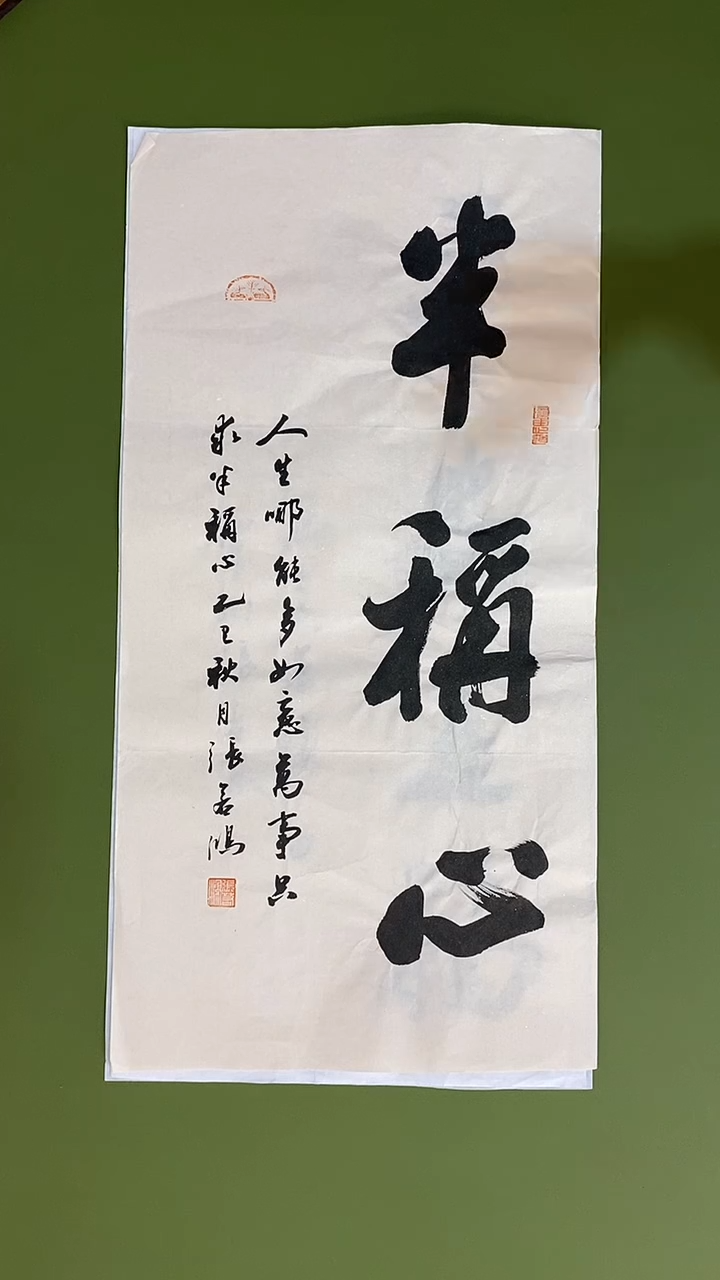 半稱心
人生哪能多如意萬事只
求半稱心乙巳秋月張若鴻